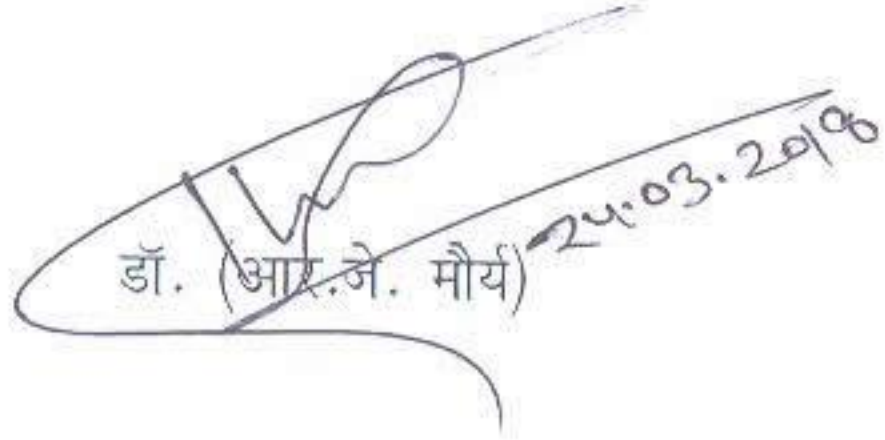 डॉ. (आर.जे. मौर्य) 24.03.2018